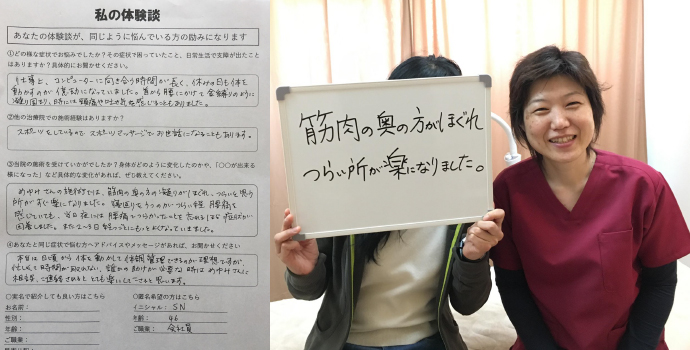 私の体験談
あなたの体験談が、同じように悩んでいる方の励みになります
①どの様な症状でお悩みでしたか？その症状で困っていたこと、日常生活で支障が出たこと
はありますか？具体的にお聞かせください。
仕事上、コンピューターに向き合う時間が長く、休みの日も体を
動かすのが億劫になっていました。首から腰にかけて金縛りのように
凝り固まり、時には頭痛や吐き気を感じることもありました。
②他の治療院での施術経験はありますか？
スポーツをしているので、スポーツマッサージでお世話になることもあります。
③当院の施術を受けていかがでしたか？身体がどのように変化したのかや、「○○が出来る
様になった」など具体的な変化があれば、ぜひ教えてください。
めゆみさんの施術では、筋肉の奥の方の凝りがほぐれ、つらいと思う
所がすぐ楽になりました。
感じていても、当日夜には腰痛でつらかったことも忘れるほど症状が
回復しました。また2〜3日経つごとに
④あなたと同じ症状で悩む方へアドバイスやメッセージがあれば、お聞かせください
本当は日頃から体を動かして体調管理できるのが理想ですが、
忙しくて時間が取れない、誰かの助けが必要な時はめゆみさんに
相談、ご連絡されるととても楽になると思います。
○実名で紹介しても良い方はこちら
○匿名希望の方はこちら
お名前：
イニシャル：SN
性別：
年齢：46
年齢：
ご職業：会社員
ご職業：
筋肉の奥の方がほぐれ
つらい所が楽になりました。